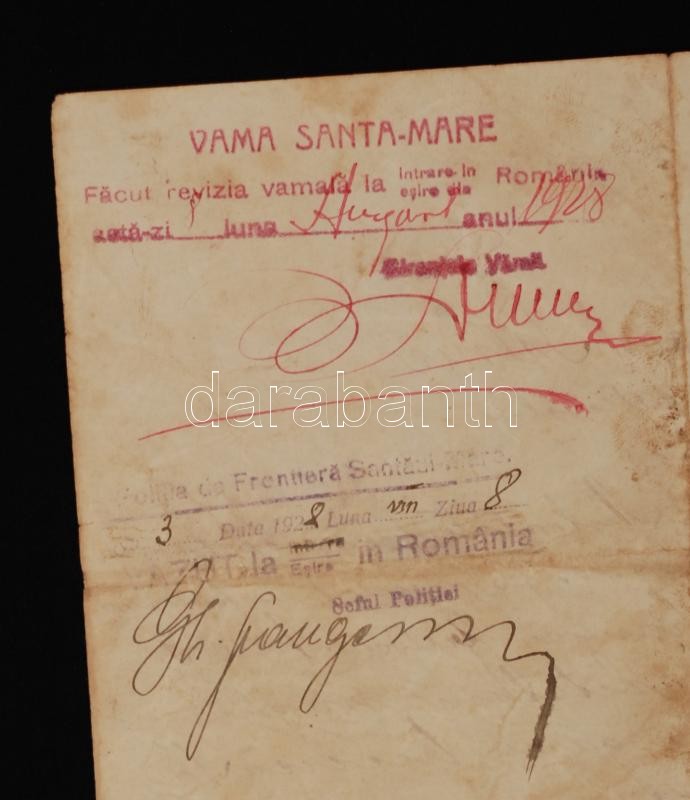 VAMA SANTA-MARE
Făcut revizia vamală la intrare in eșire din România
astă-zi 8 luna August anul 1928
Vămii
darabanth
Poliția de Frontieră Santăul-Mare.
3 Data 1928 Luna VIII Ziua 8
VĂZUT la Intrare Eșire in România
Șeful Poliției
Gh.